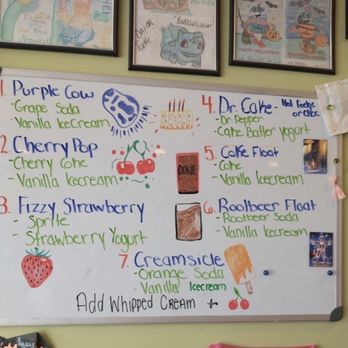 1. Purple Cow
- Grape Soda
- Vanilla Icecream
2. Cherry Pop
- Cherry Coke
- Vanilla Icecream
3. Fizzy Strawberry
- Sprite
- Strawberry Yogurt
4. Dr. Cake - Hot Fudge
- Dr. Pepper
- Cake Batter Yogurt
5. Coke Float
- Coke
- Vanilla Icecream
COKE
6. Rootbeer Float
- Rootbeer Soda
- Vanilla Icecream
7. Creamsicle
- Orange Soda
- Vanilla Icecream
Add Whipped Cream +